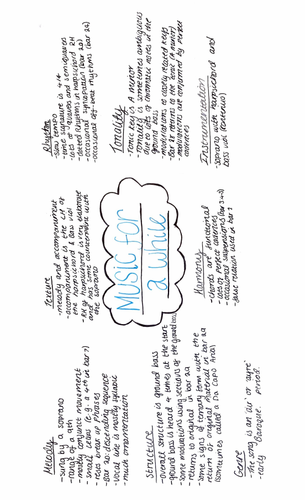 Melody
- sung by a soprano
- range of a 9th
- mostly conjunct movement
- small leaps (e.g. a 4th in bar 7)
- rests break up phrases
- Bar 20 descending sequence
- vocal line is mostly syllabic
- much ornamentation
Texture
- melody and accompaniment
- accompaniment is the LH of
the harpsichord & bass viol
- RH of harpsichord is very elaborate
and has some counterpoint with
the soprano
Rhythm
- slow tempo
- time signature is 4/4
- lots of quavers and semiquavers
- dotted rhythms in harpsichord RH
- occasional syncopation (bar 22)
- occasional off-beat rhythms (bar 24)
Structure
- overall structure is ground bass
- ground bass is heard 4 times at the start
- some modulations using sections of the ground bass
- returns to original in bar 22
- some signs of ternary form with the
return of original material in bar 22
(sometimes called a Da Capo Aria)
MUSIC FOR
a while
Tonality
- tonic key is A minor
- tonality is sometimes ambiguous
due to lots of chromatic notes in the
ground bass
- modulations to nearly related keys
- Bar 22 returns to the tonic (A minor)
- modulations are confirmed by perfect
cadences
Genre
- the song is an 'air' or 'ayre'
- early 'Baroque' period.
Harmony
- chords are functional
- uses of perfect cadences
- occasional suspensions
- false relation used in bar 1
Instrumentation
- soprano with harpsichord and
bass viol (continuo)